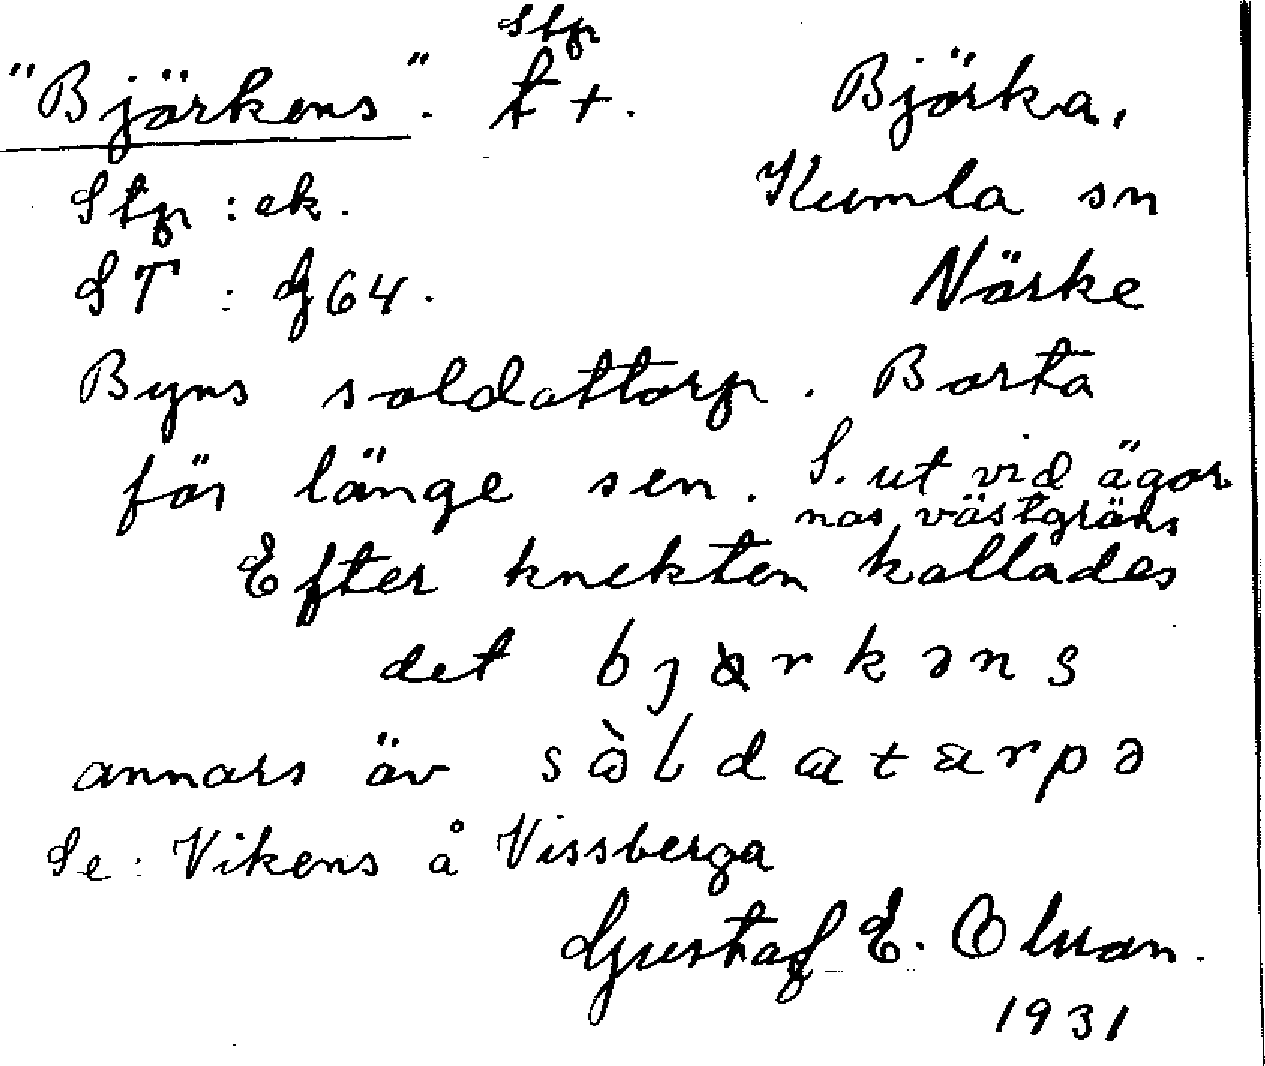 Stp
"Björkens". t +. Björka,
Stp : ek. Kumla sn
ST : G64. Närke
Byns soldattorp. Borta
för länge sen. S. ut vid ägor
nas västgräns
Efter knekten kallades
det bjærkəns
annars äv sòldatarpə
Se : Vikens å Vissberga
Gustaf E. Olsson.
1931